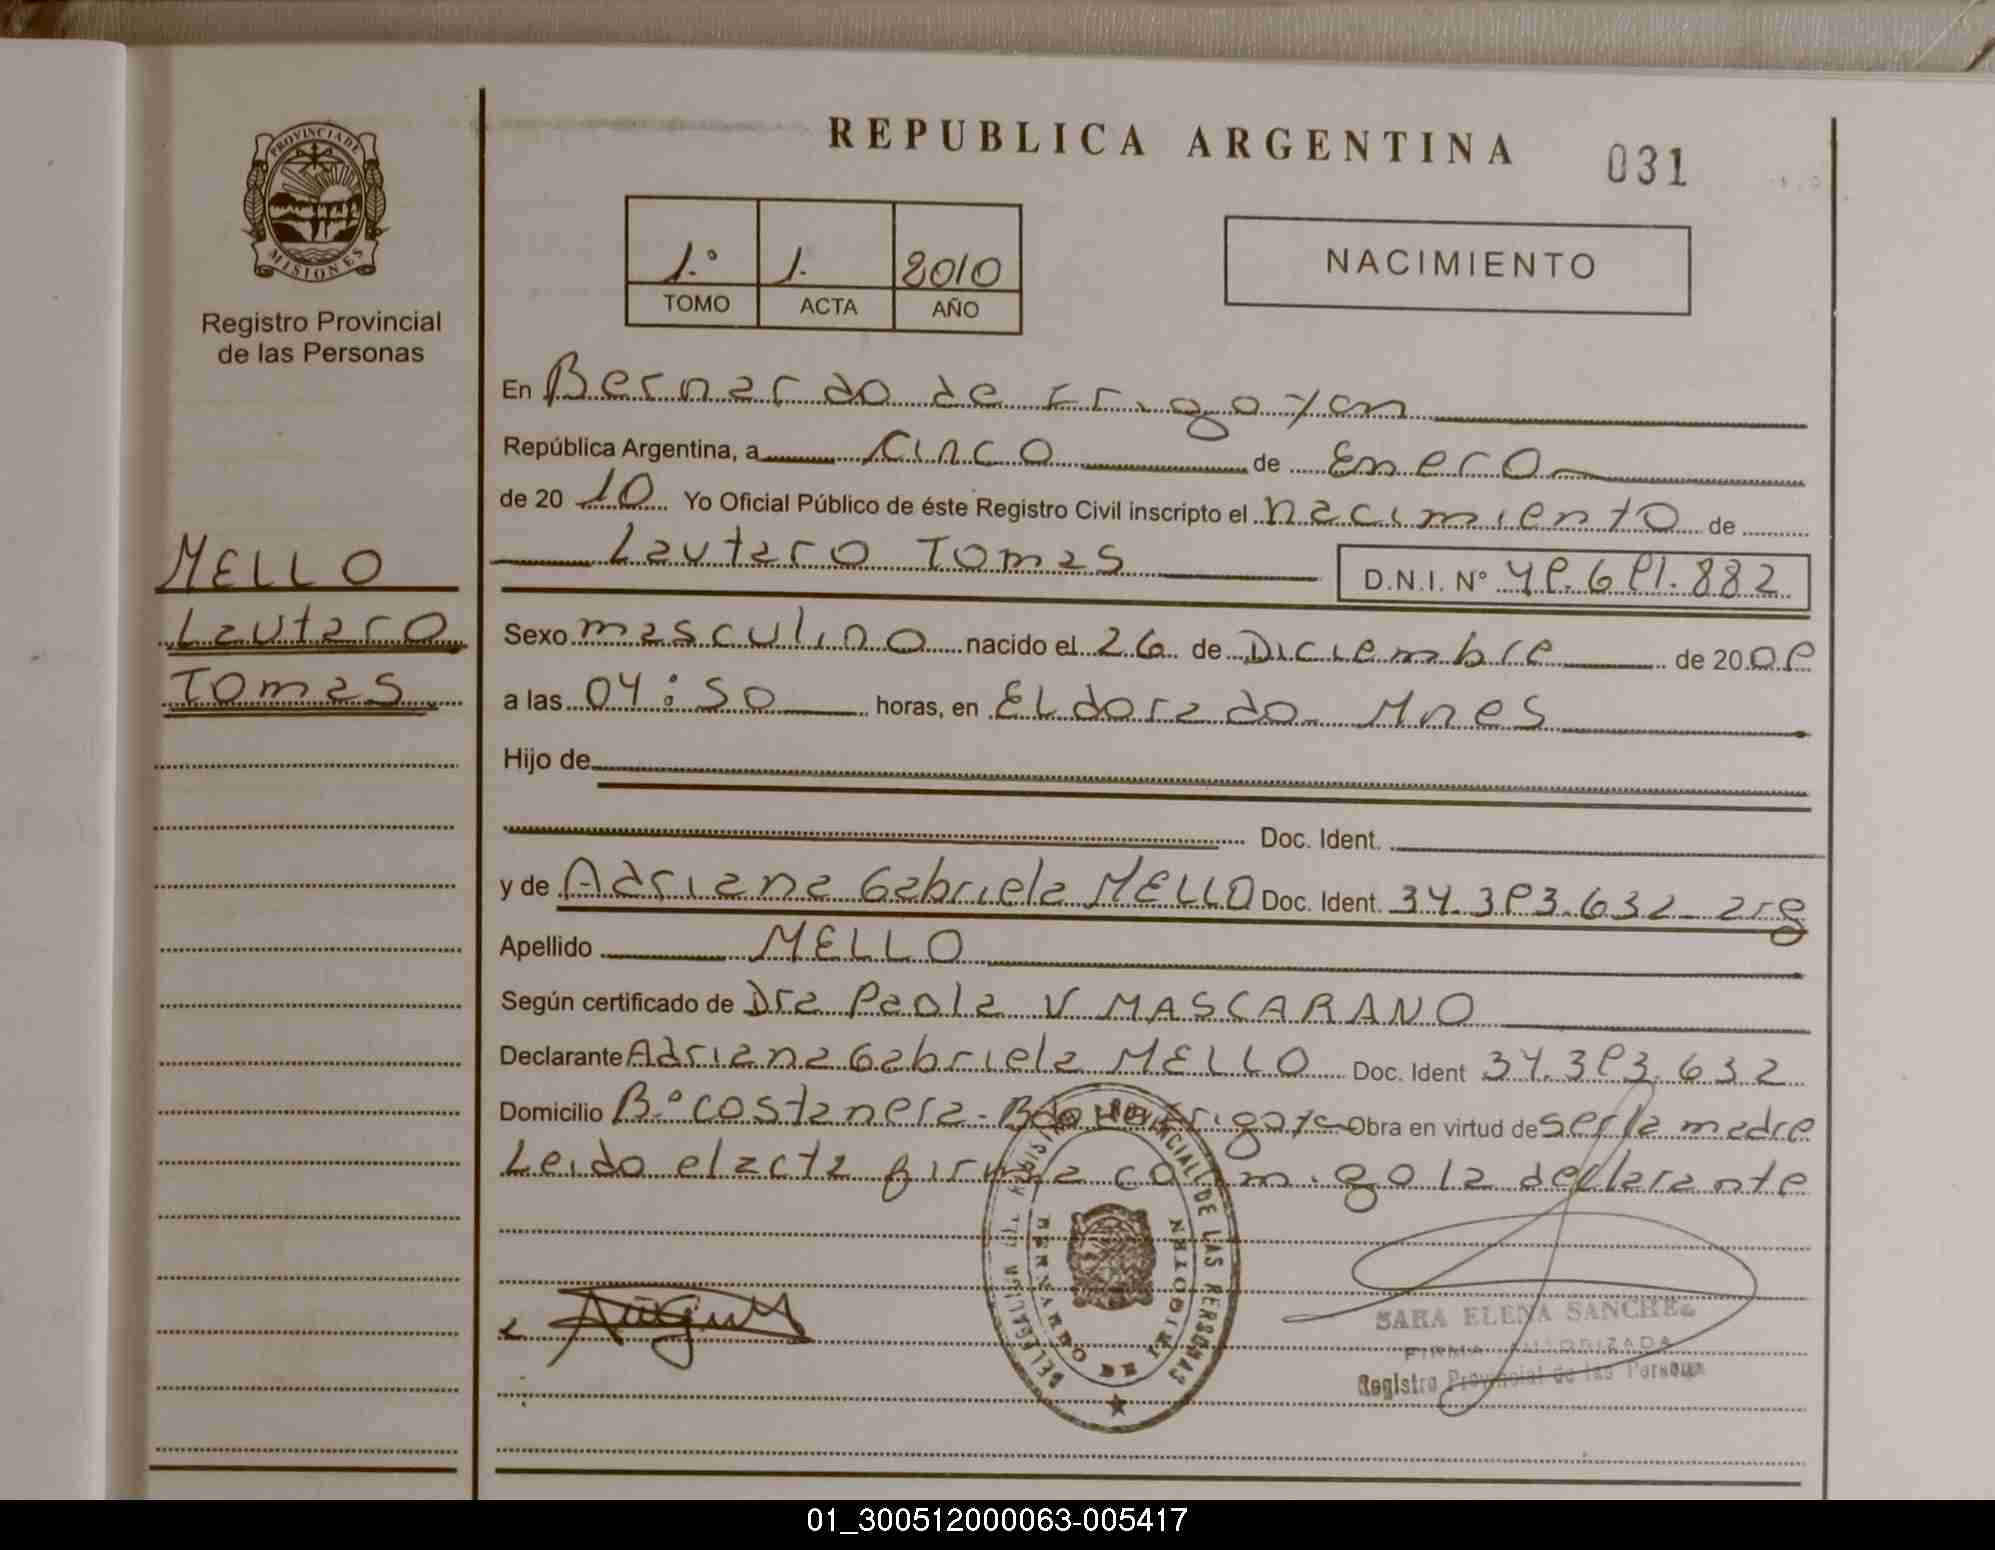 REPUBLICA ARGENTINA
031
PROVINCIA DE
MISIONES
Registro Provincial
de las Personas
1.º 1. 2010
TOMO ACTA AÑO
NACIMIENTO
En Bernardo de Irigoyen
República Argentina, a cinco de Enero
de 20 10 Yo Oficial Público de éste Registro Civil inscripto el nacimiento de
Lautaro Tomas D.N.I. Nº 49.691.882
MELLO
Lautaro
Tomas
Sexo masculino nacido el 26 de Diciembre de 20 09
a las 04:50 horas, en Eldorado Mnes
Hijo de
Doc. Ident.
y de Adriana Gabriela MELLO Doc. Ident. 34.393.632 arg
Apellido MELLO
Según certificado de Dra Paola V MASCARANO
Declarante Adriana Gabriela MELLO Doc. Ident 34.393.632
Domicilio B.º costanera - Bdo Irigoye Obra en virtud de ser la madre
Leido el acta firma conmigo la declarante
REGISTRO PROVINCIAL DE LAS PERSONAS
DELEGACION
BERNARDO DE IRIGOYEN
SARA ELENA SANCHEZ
FIRMA AUTORIZADA
Registro Provincial de las Personas
01_300512000063-005417